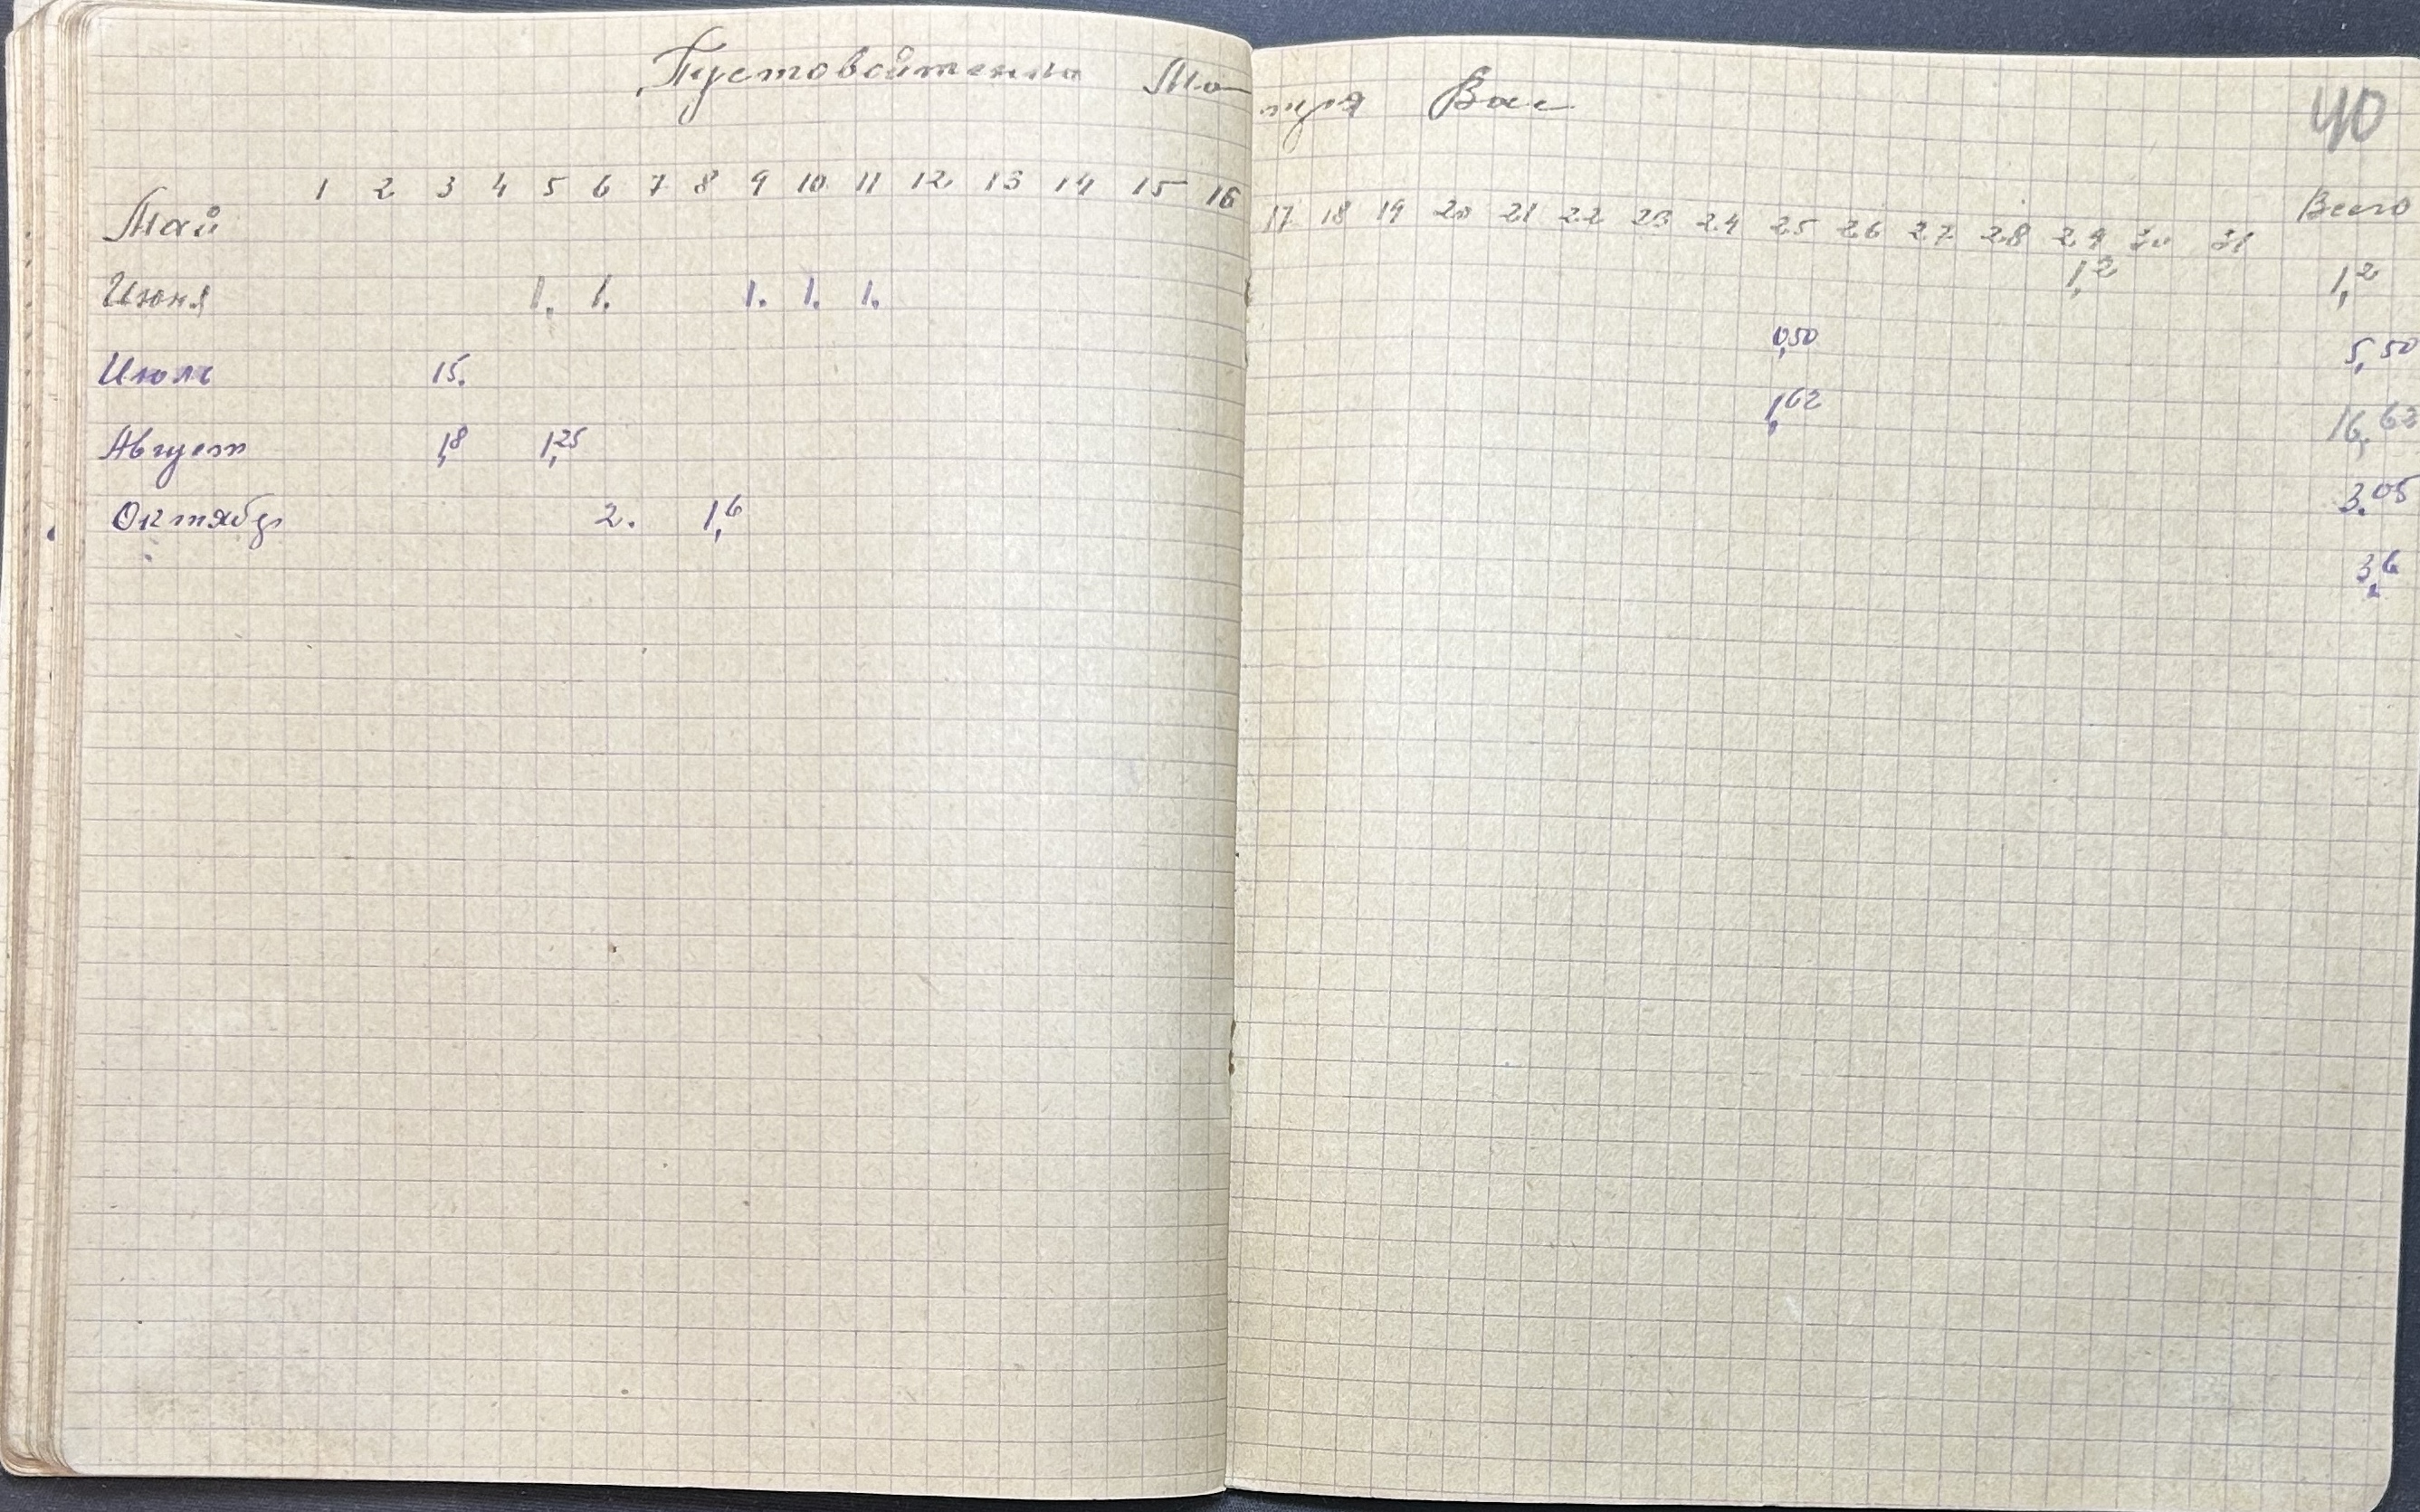 Пустовойтенко Мотря Вас 40
1 2 3 4 5 6 7 8 9 10 11 12 13 14 15 16 17 18 19 20 21 22 23 24 25 26 27 28 29 30 31 Всего
Май 1,2 1,2
Июня 1. 1. 1. 1. 1. 0,50 5,50
Июль 15. 1,62 16,62
Август 1,8 1,25 3,05
Октябр 2. 1,6 3,6